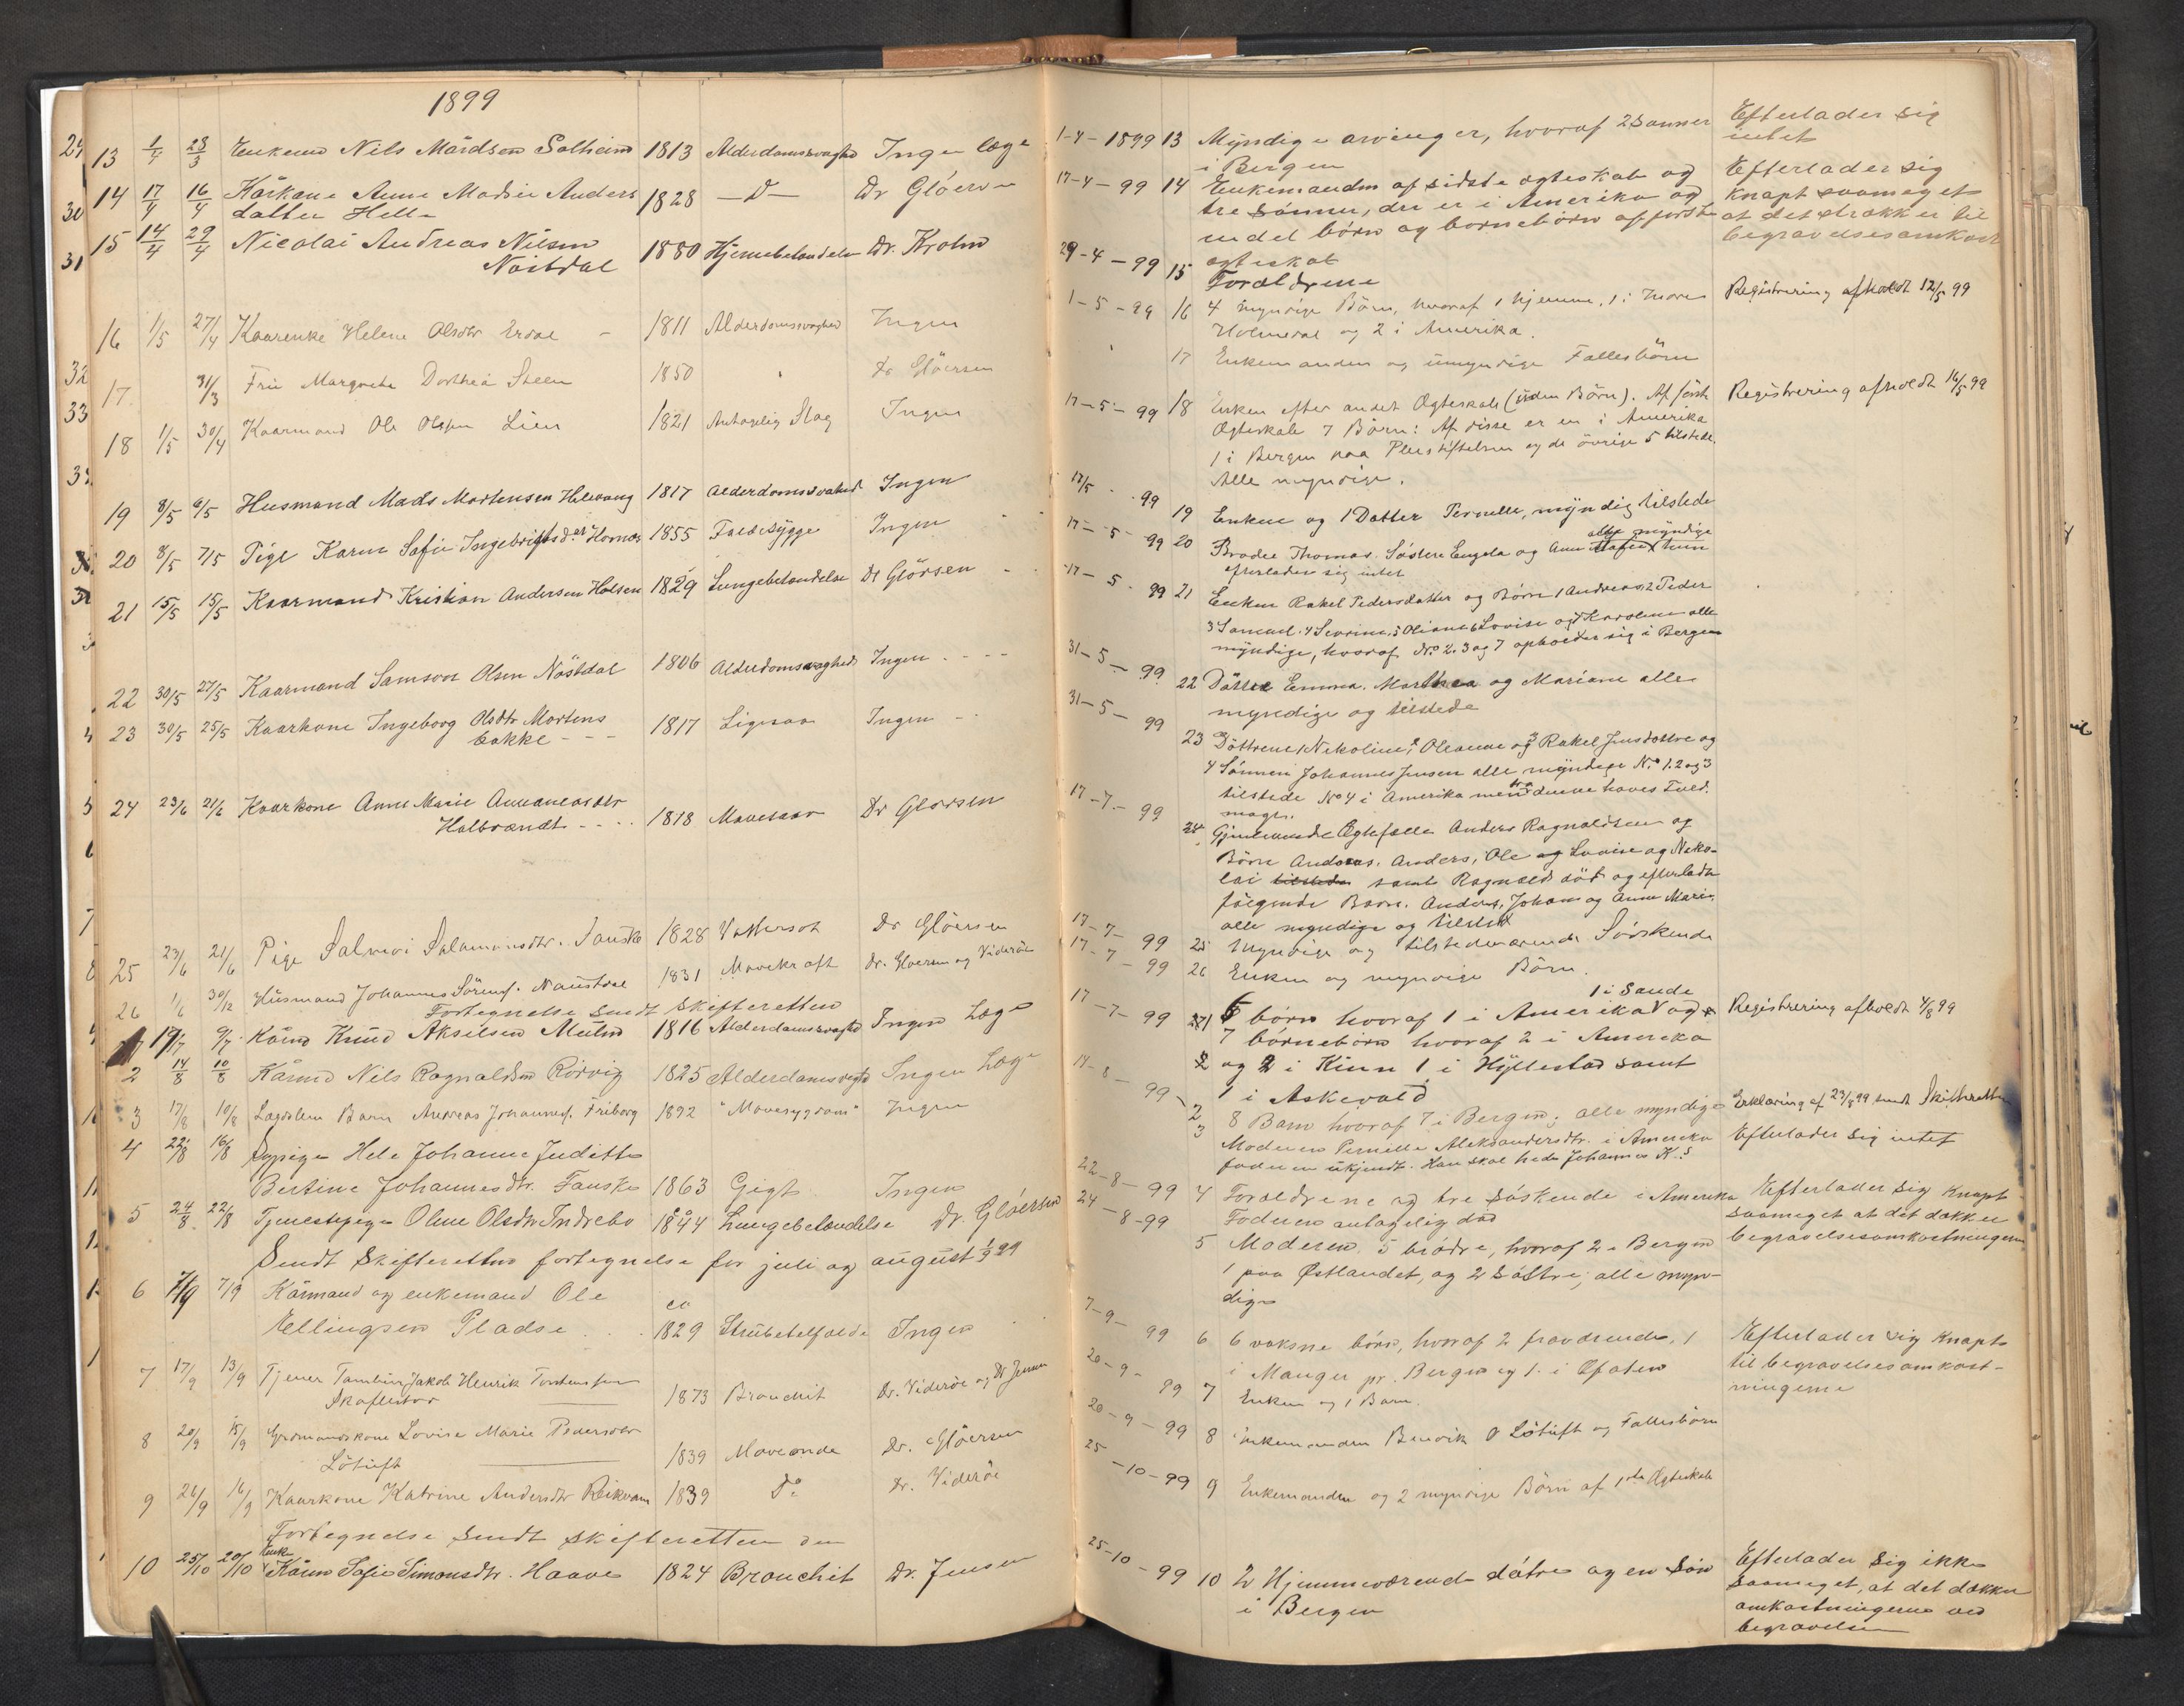 1899
13 1/4 28/3 Enkemd Nils Madsen Solheim 1813 Alderdomssvaghed Ingen læge
14 17/4 16/4 Kårkone Anne Madsie Anders 1828 —D— Dr Gløersen
datter Helle
15 14/4 29/4 Nicolai Andreas Nilsen 1880 Hjernebetændelse Dr. Krohn
Nøstdal
16 1/5 27/4 Kaarenke Helene Olsdtr Erdal 1811 Alderdomssvaghed Ingen
17 31/3 Fru Margrete Dorthea Steen 1850 Dr Gløersen
18 1/5 30/4 Kaarmand Ole Olsen Lien 1821 Antagelig Slag Ingen
19 8/5 6/5 Husmand Mads Mortensen Helevang 1817 Alderdomssvakhed Ingen
20 8/5 7/5 Pige Karen Sofie Ingebrigtsd.er Hornæs 1855 Faldesygge Ingen
21 15/5 15/5 Kaarmand Kristian Andersen Holsen 1829 Lungebetændelse Dr Glörsen
22 30/5 27/5 Kaarmand Samson Olsen Nöstdal 1806 Alderdomssvaghed Ingen
23 30/5 25/5 Kaarkone Ingeborg Olsdtr Mortens 1817 Ligesaa Ingen
bakke
24 23/6 21/6 Kaarkone Anne Marie Annaneasdtr
Halbrændt 1818 Mavesaar Dr Glörsen
25 23/6 21/6 Pige Salmoi Salamonsdtr. Fauske 1828 Vattersot Dr Gløersen
26 1/6 30/12 Husmand Johannes Sörens. Naustdal 1831 Mavekræft Dr. Gloersen og Viderøe
Fortegnelse sendt skifteretten
1 17/7 9/7 Kårmd Knud Akselsen Mulen 1816 Alderdomssvaghed Ingen Læge
2 14/8 10/8 Kårmd Nils Ragnaldsen Rørvig 1825 Alderdomssvaghed Ingen Læge
3 17/8 10/8 Lægdslem Barn Andreas Johannes. Friborg 1892 "Mavesygdom" Ingen
4 22/8 16/8 Sypige Hele Johanne Juditte
Bertine Johannesdtr. Fauske 1863 Gigt Ingen
5 24/8 22/8 Tjenestepige Oline Olsdtr Indrebø 1844 Lungebetændelse Dr. Gløersen
Sendt Skifteretten fortegnelse for juli og august 1/9 99
6 7/9 7/9 Kårmand og enkemand Ole
Ellingsen Pladsen ca 1829 Strubetilfælde Ingen
7 17/9 13/9 Tjener Tambur Jakob Henrik Torstensen
Skaflestad 1873 Bronchit Dr. Viderøe og Dr Jensen
8 20/9 15/9 Grdmandskone Lovise Marie Pedersdtr
Lötuft 1839 Maveonde Dr. Gløersen
9 26/9 16/9 Kaarkone Katrine Andersdtr Reikvam 1839 Do Dr. Viderøe
Fortegnelse sendt skifteretten den
10 25/10 20/10 Enke Kårm Sofie Simonsdtr. Haave 1824 Bronchit Dr. Jensen
1-4-1899 13 Myndige arvinger, hvoraf 2 sønner Efterlader sig
i Bergen intet
17-4-99 14 Enkemanden af sidste ægteskab og Efterlader sig
tre sønner, der er i Amerika og knapt saameget
endel børn og børnebørn af første at det strækker til
ægteskab begravelsesomkost
29-4-99 15 Forældrene
1-5-99 16 4 myndige Börn, hvoraf 1 hjemme, 1 i Indre Registrering afholdt 12/5 99
Holmedal og 2 i Amerika.
17 Enkemanden og umyndige Fællesbörn
17-5-99 18 Enken efter andet Ægteskab (uden Börn). Af förste Registrering afholdt 16/5 99
Ægteskab 7 Börn: Af disse er en i Amerika
1 i Bergen paa Pleiestiftelsen og de övrige 5 tilstede.
Alle myndige.
17/5 99 19 Enken og 1 Datter Pernille, myndig tilstede
17-5-99 20 Broder Thomas. Söstre Engela og Anne alle myndige hun
efterlader sig intet
17-5-99 21 Enken Rakel Pedersdatter og Börn 1 Andreas, 2 Peder
3 Samuel. 4 Sevrine, 5 Oliane 6 Lovise og 7 Karolene alle
myndige, hvoraf No 2. 3 og 7 opholder sig i Bergen
31-5-99 22 Döttre Emma. Marthea og Mariane alle
myndige og tilstede
31-5-99 23 Döttrene 1 Nekoline, 2 Oleanne og 3 Rakel Jensdöttre og
4 Sönnen Johannes Jensen alle myndige No 1. 2 og 3
tilstede No 4 i Amerika men fra denne haves Fuld.
magt.
17-7-99 24 Gjenlevende Ægtefælle Anders Ragnaldsen og
Börn Andreas. Anders, Ole og Lovise og Neko-
lai tilstede samt Ragnald död og efterladte
fölgende Barn. Anders, Johan og Anne Marie,
alle myndige og tilsted
17-7-99 25 Myndige og tilstedeværende Söskende
17-7-99 26 Enken og myndige Börn.
17-7-99 1 6 børn hvoraf 1 i Amerika 1 i Sande og Registrering afholdt 4/8 99
7 børnebørn hvoraf 2 i Amerika
og 2 i Kinn 1 i Hyllestad samt
1 i Askevold
17-8-99 2 8 Barn hvoraf 7 i Bergen; alle myndige Erklæring af 23/8 99 sendt Skifteretten
3 Moderen Pernille Aleksandersdtr. i Amerika Efterlader sig intet
faderen ukjendt. Han skal hede Johannes K.s
22-8-99 4 Forældrene og tre søskende i Amerika Efterlader sig knapt
Faderen antagelig død saameget at det dækker
24-8-99 5 Moderen, 5 brødre, hvoraf 2 i Bergen begravelsesomkostningerne
1 paa Østlandet, og 2 søstre; alle myn-
dige
7-9-99 6 6 voksne børn, hvoraf 2 fraværende, 1 Efterlader sig knapt
i Manger pr. Bergen og 1 i Ofoten til begravelsesomkost-
20-9-99 7 Enken og 1 Barn. ningerne
20-9-99 8 Enkemanden Benvik O Lötuft og Fællesbörn
25-10-99 9 Enkemanden og 2 myndige Börn af 1ste Ægteskab
25-10-99 10 2 Hjemmeværende døtre og en søn Efterlader sig ikke
i Bergen saameget, at det dækker
omkostningerne ved
begravelsen